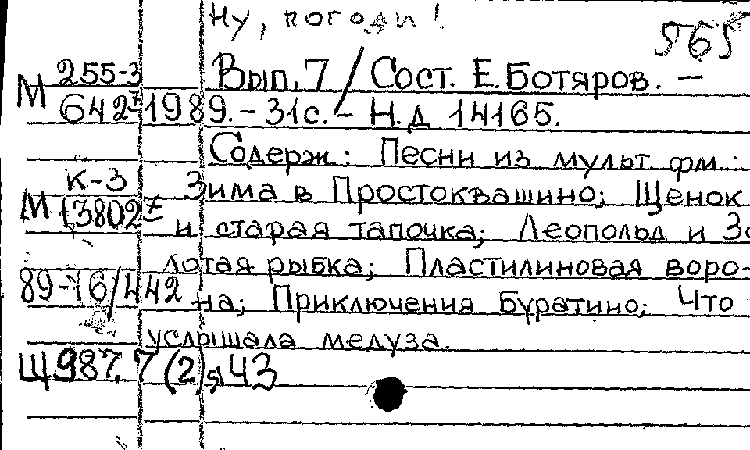 Ну, погоди!
565
М 255-3 Вып. 7 / Сост. Е. Ботяров. –
642 1989. – 31с. – Н.д 14165.
Содерж: Песни из мультфм.:
К-3 Зима в Простоквашино; Щенок
М 13802 и старая тапочка; Леополвд и Зо
лотая рыбка; Пластилиновая воро-
89-16/442 на; Приключения Буратино; Что
услышала медуза.
Щ987.7(2)я43